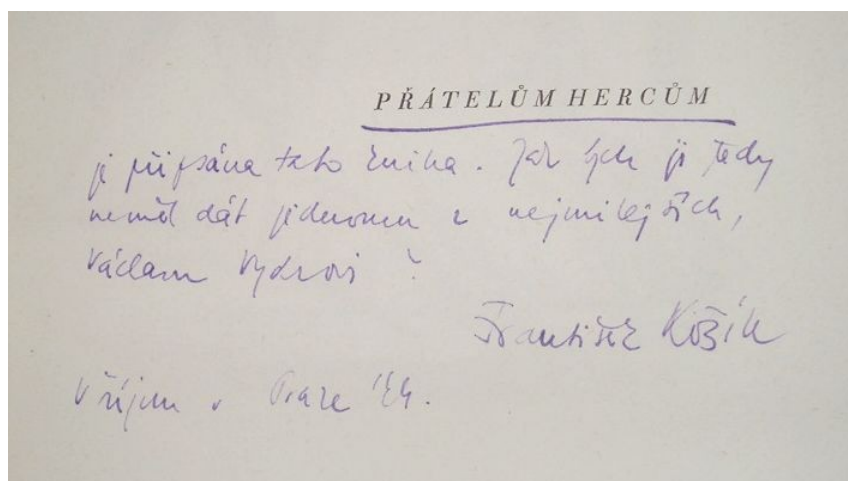 PŘÁTELŮM HERCŮM
je připsána tato kniha. Jak bych ji tedy
neměl dát jednomu z nejmilejších,
Václavu Vydrovi?
František Kožík
V říjnu v Praze